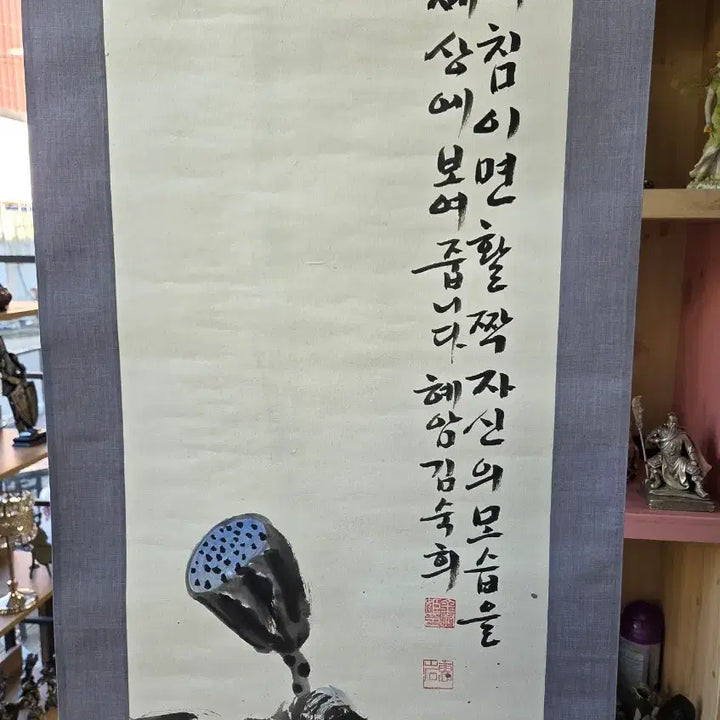 침이면 활짝 자신의 모습을
세상에 보여 줍니다. 혜암 김숙희